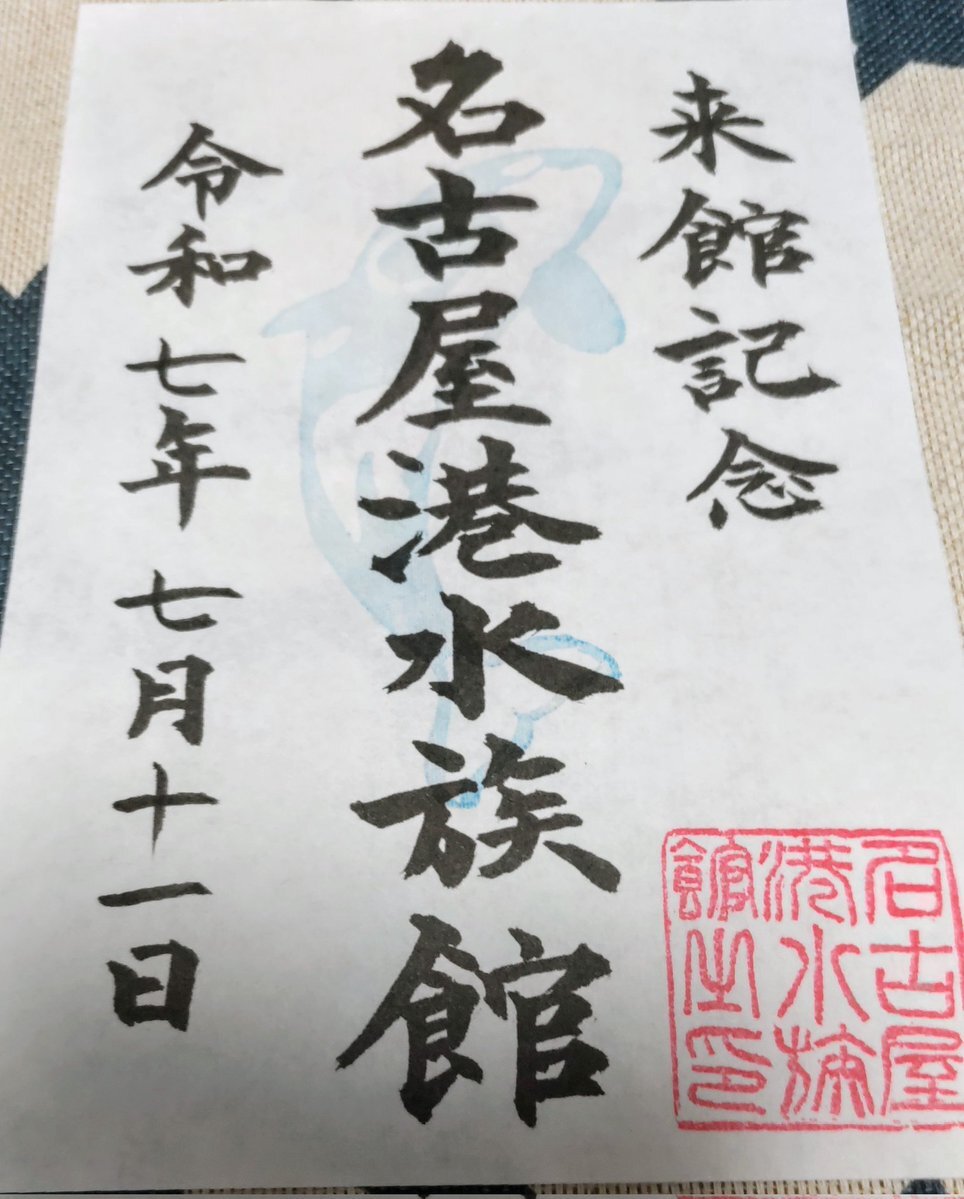 来館記念
名古屋港水族館
令和七年七月十一日
名古屋
港水族
館之印